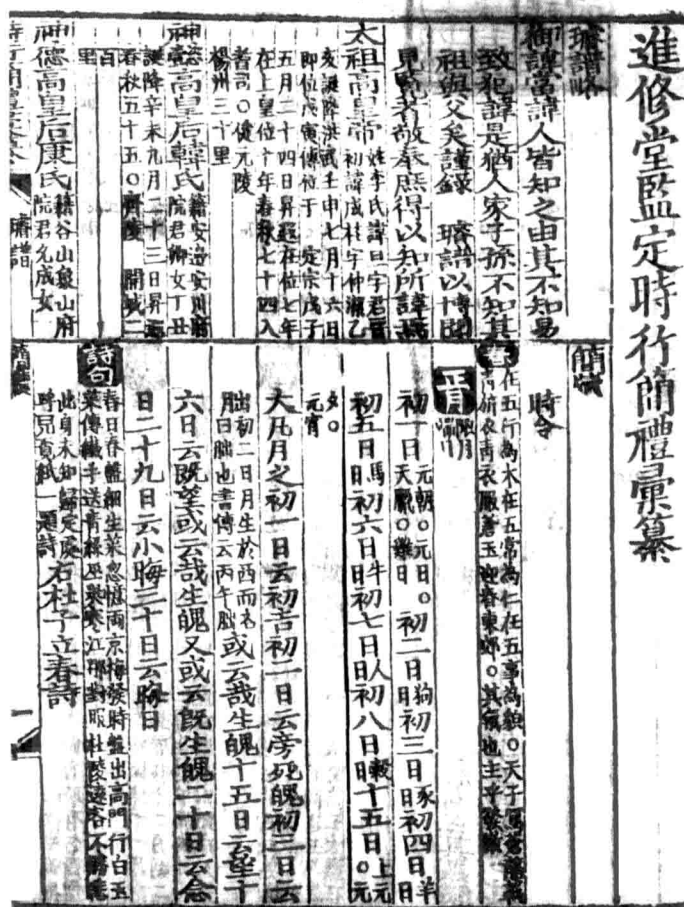 進修堂監定時行簡禮彙纂
璿譜略
御諱當諱人皆知之由其不知易
致犯諱是猶人家子孫不知其
祖與父矣謹錄 璿譜以
見覽者敬奉庶得以知所諱焉
太祖高皇帝
姓李氏諱旦字君晋
初諱成桂字仲潔乙
亥誕降洪武壬申七月十六日
即位戊寅傳位于 定宗戊子
五月二十四日昇遐在位七年
在上皇位十年春秋七十四入
耆司〇健元陵
楊州三十里
神懿高皇后韓氏
籍安邊安川府
院君卿女丁丑
誕降辛未九月二十三日昇遐
春秋五十五〇齊陵 開城二
百
里
神德高皇后康氏
籍谷山象山府
院君允成女
時行簡禮彙纂
璿譜
簡式
時令
春
在五行為木在五常為仁在五事為貌〇天子
衣青衣服蒼玉迎春東郊〇其
正月
初一日
元朝〇元日〇
天臘〇雞日
初二日狗日
初三日豕日
初四日羊日
初五日馬日
初六日牛日
初七日人日
初八日穀日
十五日上元〇元
夕〇
元宵
大凡月之初一日云初吉初二日云旁死魄初三日云
朏
初二日月生於西而名
月曰朏也書傳云丙午朏
或云哉生魄十五日云望十
六日云既望或云哉生魄又或云既生魄二十日云念
日二十九日云小晦三十日云晦日
詩句
春日春盤細生菜忽憶兩京梅發時盤出高門行白玉
菜傳纖手送青絲巫峽寒江那對眼杜陵遠客不勝悲
此身未知歸定處
呼兒覓紙一題詩
右杜子立春詩
一